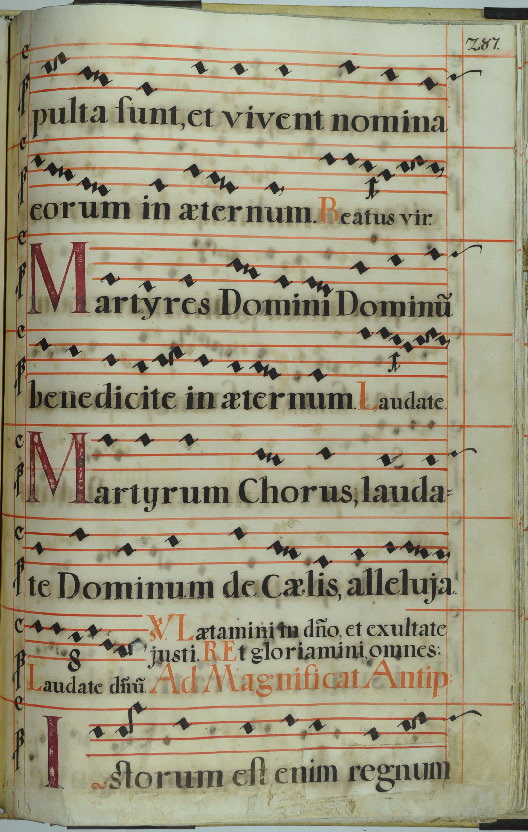 281.
pulta sunt, et vivent nomina
eorum in æternum. Beatus vir.
Martyres Domini Dominũ
benedicite in æternum. Laudate.
Martyrum Chorus, lauda=
te Dominum de Cælis, alleluja.
8 V Lætamini in dño, et exultate
justi. RE t gloriamini omnes:
Laudate dñũ Ad Magnificat Antip:
Istorum est enim regnum